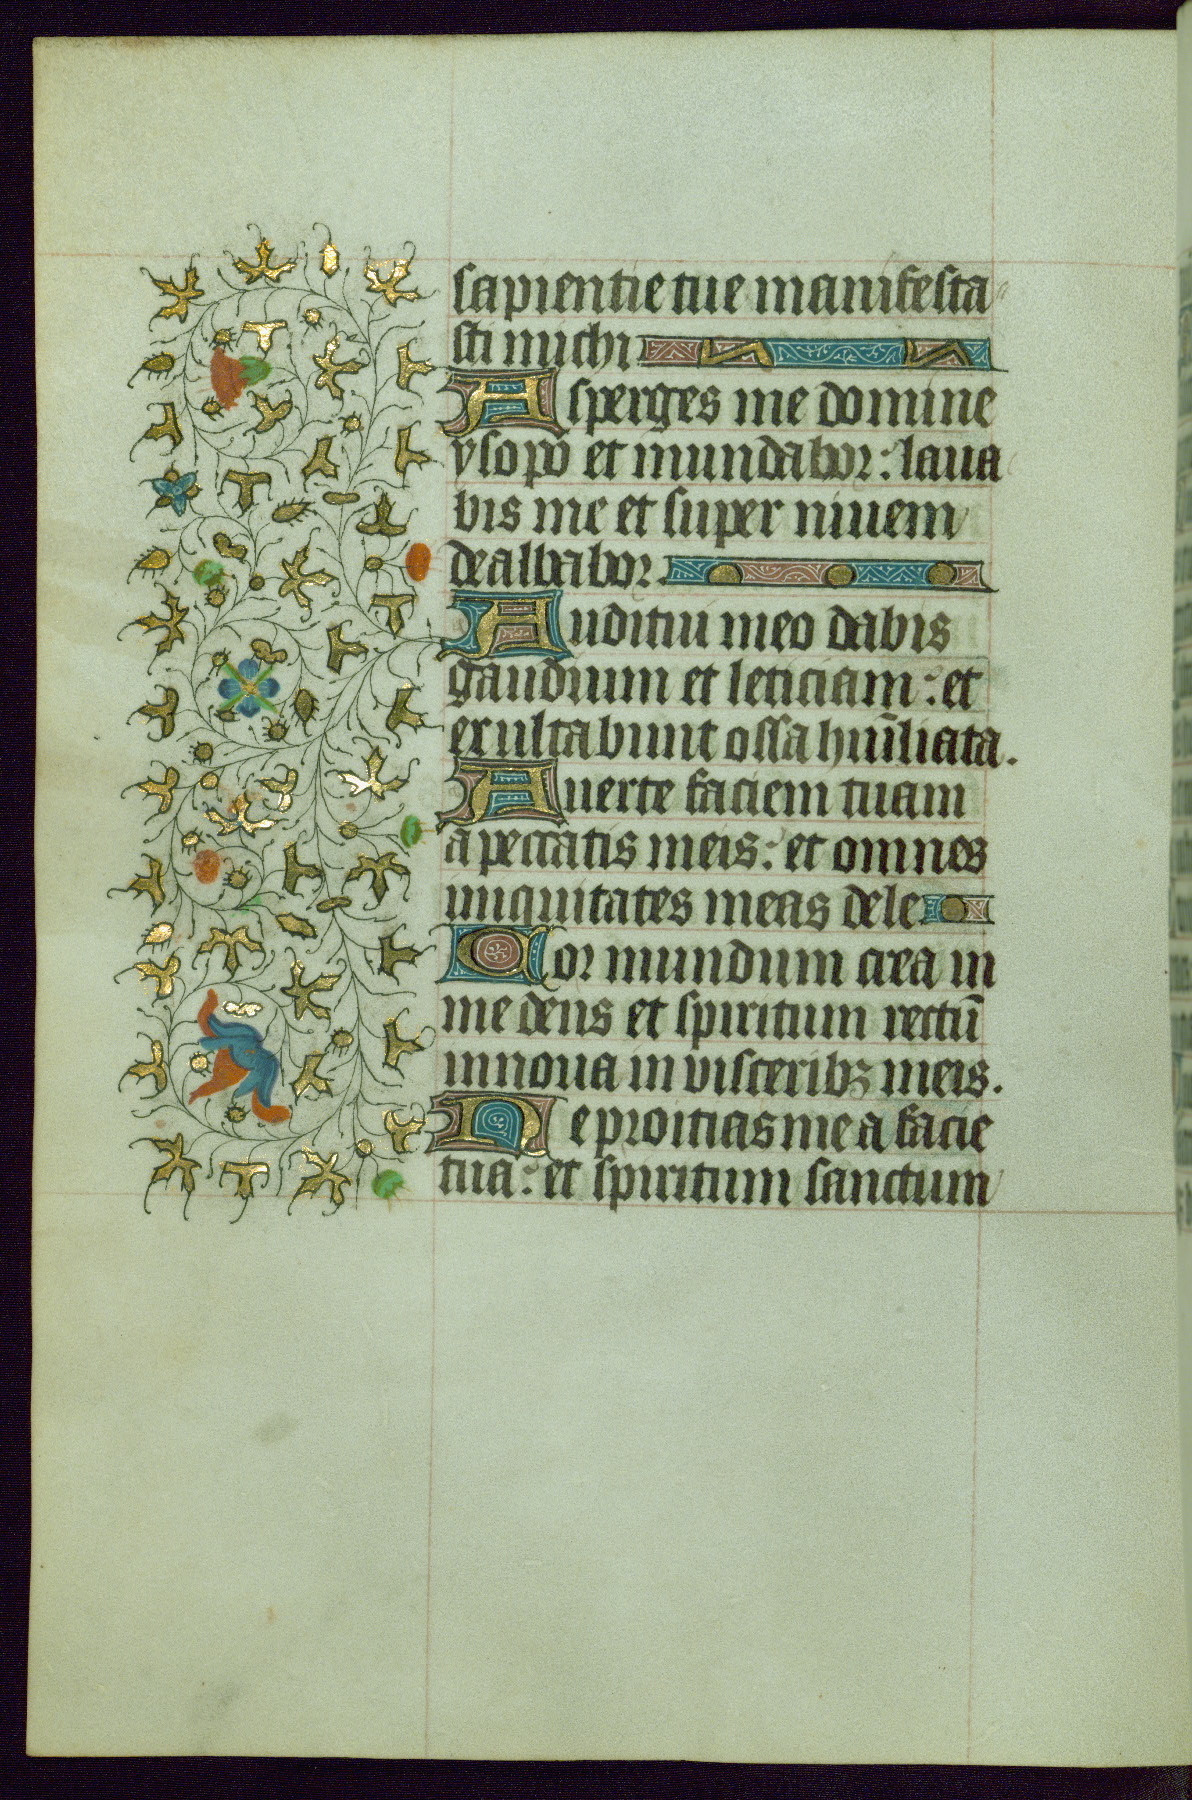 sapientie tue manifesta
sti michi
Asperges me domine
ysopo et mundabor: laua
bis me et super niuem
dealbabor.
Auditui meo dabis
gaudium et leticiam: et
exultabunt ossa hūiliata.
Auerte faciem tuam
a peccatis meis: et omnes
iniquitates meas dele
Cor mundum crea in
me deus et spiritum rectū
innoua in visceribꝫ meis.
Ne proicias me a facie
tua: et spiritum sanctum